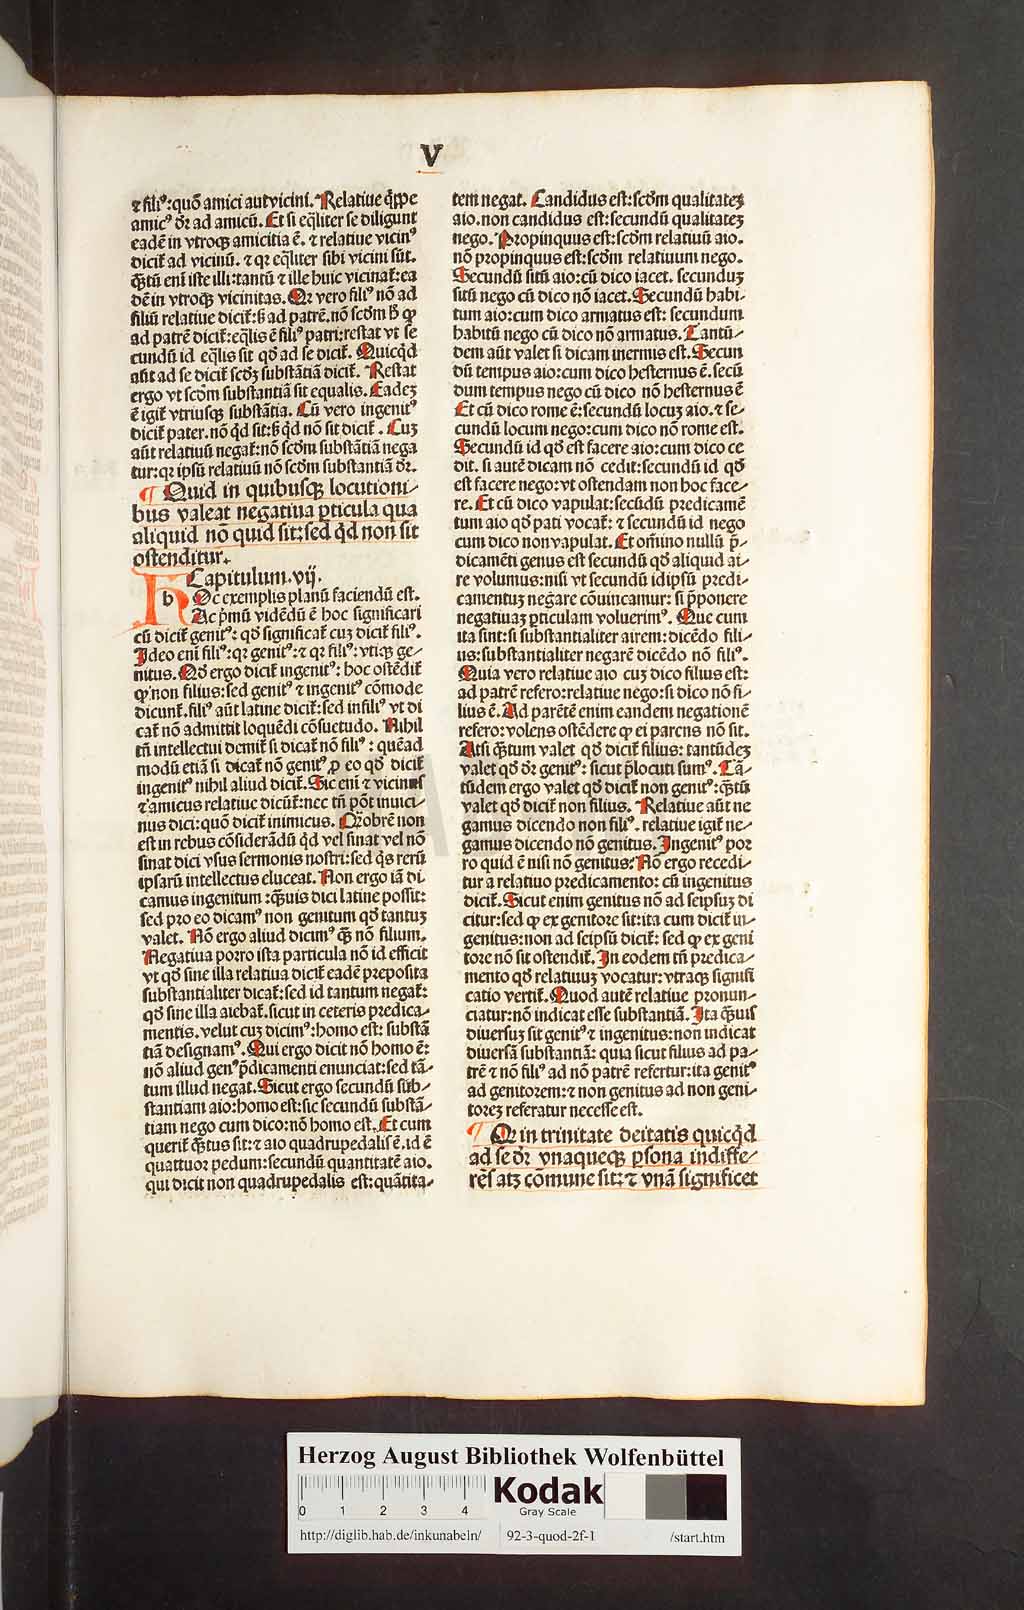 V
⁊ filiꝰ: quō amici aut vicini. Relatiue q̄ppe
amicꝰ d̄r ad amicū. Et si eq̄liter se diligunt
eadē in vtroqꝫ amicitia ē. ⁊ relatiue vicinꝰ
dicit̄ ad vicinū. ⁊ qꝛ eq̄liter sibi vicini sūt.
q̄tū eni iste illi: tantū ⁊ ille huic vicinat̄: ea
dē in vtroqꝫ vicinitas. Qꝛ vero filiꝰ nō ad
filiū relatiue dicit̄: ß ad patrē. nō scd̄m ß ꝙ
ad patrē dicit̄: eq̄lis ē filiꝰ patri: restat vt se
cundū id eq̄lis sit qd̄ ad se dicit̄. Quicq̄d
aūt ad se dicit̄ scd̄ꝫ substātiā dicit̄. Restat
ergo vt scd̄m substantiā sit equalis. Eadeꝫ
ē igit̄ vtriusqꝫ substātia. Cū vero ingenitꝰ
dicit̄ pater. nō q̄d sit: ß q̄d nō sit dicit̄. Cuꝫ
aūt relatiuū negat̄: nō scd̄m substātiā nega
tur: qꝛ ipsū relatiuū nō scd̄m substantiā d̄r.
¶ Quid in quibusqꝫ locutioni-
bus valeat negatiua ꝑticula qua
aliquid nō quid sit: sed q̄d non sit
ostenditur.
Capitulum. vij.
h Oc exemplis planū faciendū est.
Ac p̄mū vidēdū ē hoc significari
cū dicit̄ genitꝰ: qd̄ significat̄ cuꝫ dicit̄ filiꝰ.
Ideo eni filiꝰ: qꝛ genitꝰ: ⁊ qꝛ filiꝰ: vtiqꝫ ge-
nitus. Qd̄ ergo dicit̄ ingenitꝰ: hoc ostēdit̄
ꝙ non filius: sed genitꝰ ⁊ ingenitꝰ cōmode
dicunt̄. filiꝰ aūt latine dicit̄: sed infiliꝰ vt di
cat̄ nō admittit loquēdi cōsuetudo. Nihil
tn̄ intellectui demit̄ si dicat̄ nō filiꝰ: quēad
modū etiā si dicat̄ nō genitꝰ, ꝓ eo qd̄ dicit̄
ingenitꝰ nihil aliud dicit̄. Sic eni ⁊ vicinus
⁊ amicus relatiue dicūt̄: nec tn̄ pōt inuici-
nus dici: quō dicit̄ inimicus. Qꝛobrē non
est in rebus cōsiderādū q̄d vel sinat vel nō
sinat dici vsus sermonis nostri: sed q̄s rerū
ipsarū intellectus eluceat. Non ergo iā di
camus ingenitum: q̄uis dici latine possit:
sed pro eo dicamꝰ non genitum qd̄ tantuꝫ
valet. Nō ergo aliud dicimꝰ q̄ꝫ nō filium.
Negatiua porro ista particula nō id efficit
vt qd̄ sine illa relatiua dicit̄ eadē preposita
substantialiter dicat̄: sed id tantum negat̄:
qd̄ sine illa aiebat̄. sicut in ceteris predica-
mentis. velut cuꝫ dicimꝰ: homo est: substā
tiā designamꝰ. Qui ergo dicit nō homo ē:
nō aliud genꝰ p̄dicamenti enunciat: sed tā-
tum illud negat. Sicut ergo secundū sub-
stantiam aio: homo est: sic secundū substā-
tiam nego cum dico: nō homo est. Et cum
querit̄ q̄tus sit: ⁊ aio quadrupedalis ē. id ē
quattuor pedum: secundū quantitatē aio.
qui dicit non quadrupedalis est: quātita-
tem negat. Candidus est: scd̄m qualitateꝫ
aio. non candidus est: secundū qualitateꝫ
nego. Propinquus est: scd̄m relatiuū aio.
nō propinquus est: scd̄m relatiuum nego.
Secundū sitū aio: cū dico iacet. secunduꝫ
sitū nego cū dico nō iacet. Secundū habi-
tum aio: cum dico armatus est: secundum
habitū nego cū dico nō armatus. Tantū-
dem aūt valet si dicam inermis est. Secun
dū tempus aio: cum dico hesternus ē. secū
dum tempus nego cū dico nō hesternus ē
Et cū dico rome ē: secundū locuꝫ aio. ⁊ se-
cundū locum nego: cum dico nō rome est.
Secundū id qd̄ est facere aio: cum dico ce
dit. si autē dicam nō cedit: secundū id qd̄
est facere nego: vt ostendam non hoc face-
re. Et cū dico vapulat: secūdū predicamē
tum aio qd̄ pati vocat̄: ⁊ secundū id nego
cum dico non vapulat. Et om̄ino nullū p̄-
dicamēti genus est secundū qd̄ aliquid ai-
re volumus: nisi vt secundū idipsū predi-
camentuꝫ negare cōuincamur: si p̄ponere
negatiuaꝫ ꝑticulam voluerimꝰ. Que cum
ita sint: si substantialiter airem: dicēdo fili-
us: substantialiter negarē dicēdo nō filiꝰ.
Quia vero relatiue aio cuꝫ dico filius est:
ad patrē refero: relatiue nego: si dico nō fi-
lius ē. Ad parētē enim eandem negationē
refero: volens ostēdere ꝙ ei parens nō sit.
Atsi q̄tum valet qd̄ dicit̄ filius: tantūdeꝫ
valet qd̄ d̄r genitꝰ: sicut p̄locuti sumꝰ. Tā-
tūdem ergo valet qd̄ dicit̄ non genitꝰ: q̄tū
valet qd̄ dicit̄ non filius. Relatiue aūt ne
gamus dicendo non filiꝰ. relatiue igit̄ ne-
gamus dicendo nō genitus. Ingenitꝰ por
ro quid ē nisi nō genitus? Nō ergo recedi-
tur a relatiuo predicamento: cū ingenitus
dicit̄. Sicut enim genitus nō ad seipsuꝫ di
citur: sed ꝙ ex genitore sit: ita cum dicit̄ in-
genitus: non ad seipsū dicit̄: sed ꝙ ex geni
tore nō sit ostendit̄. In eodem tn̄ predica-
mento qd̄ relatiuuꝫ vocatur: vtraqꝫ signifi
catio vertit̄. Quod autē relatiue pronun-
ciatur: nō indicat esse substantiā. Ita q̄uis
diuersuꝫ sit genitꝰ ⁊ ingenitus: non indicat
diuersā substantiā: quia sicut filius ad pa-
trē ⁊ nō filiꝰ ad nō patrē refertur: ita genitꝰ
ad genitorem: ⁊ non genitus ad non geni-
toreꝫ referatur necesse est.
¶ Qꝛ in trinitate deitatis quicq̄d
ad se d̄r vnaqueqꝫ ꝑsona indiffe-
rēs atqꝫ cōmune sit: ⁊ vnā significet
Herzog August Bibliothek Wolfenbüttel
0 1 2 3 4
Kodak
Gray Scale
http://diglib.hab.de/inkunabeln/ 92-3-quod-2f-1 /start.htm